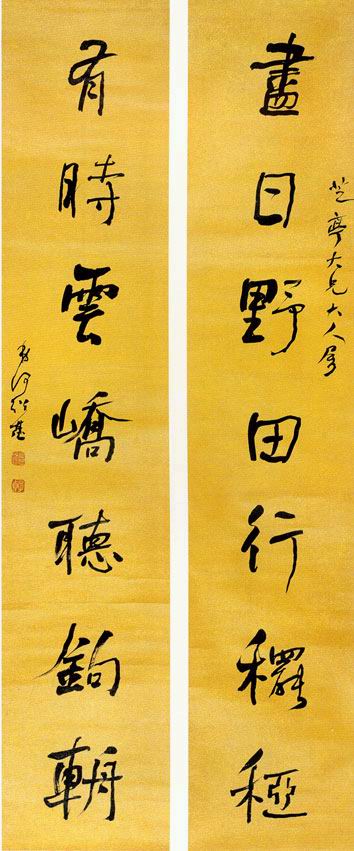 盡日野田行䆉稏
芝亭大兄大人屬
有時雲嶠聽鉤輈
弟何紹基